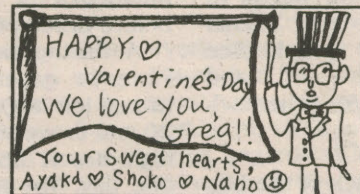 HAPPY ♡
Valentine's Day
We love you,
Greg!!
Your Sweet hearts,
Ayaka ♡ Shoko ♡ Naho ☺